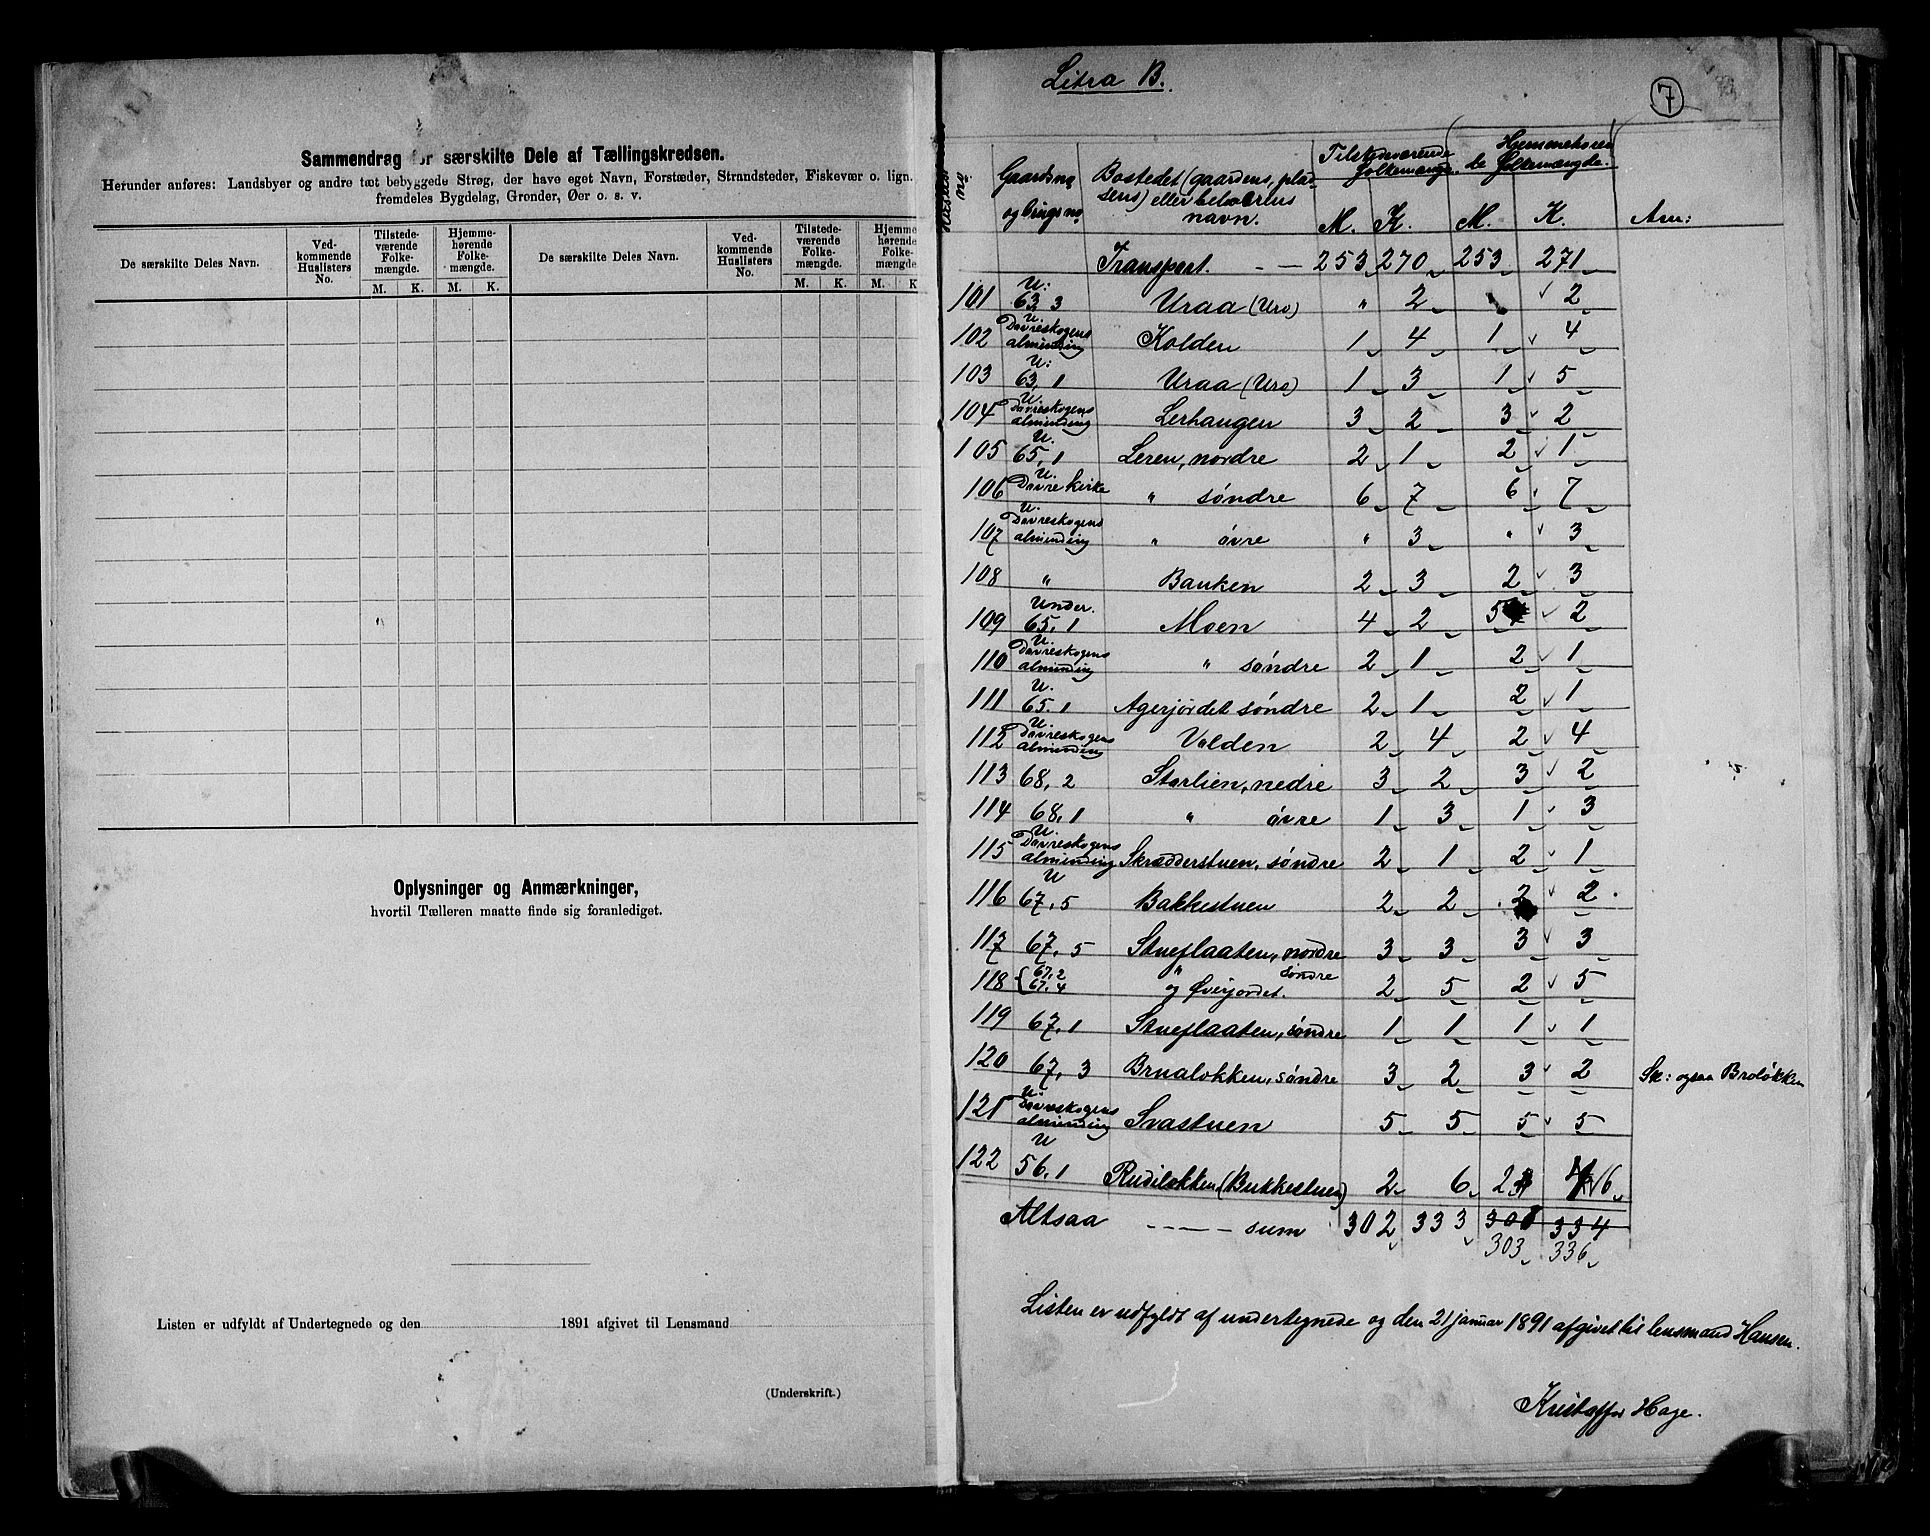 Sammendrag for særskilte Dele af Tællingskredsen.
Herunder anføres: Landsbyer og andre tæt bebyggede Strøg, der have eget Navn, Forstæder, Strandsteder, Fiskevær o. lign.
fremdeles Bygdelag, Grønder, Øer o. s. v.
De særskilte Deles Navn. Ved-kommende Huslisters No. Tilstede-værende Folke-mængde. Hjemme-hørende Folke-mængde. De særskilte Deles Navn. Ved-kommende Huslisters No. Tilstede-værende Folke-mængde. Hjem-hørende Folke-mængde.
M. K. M. K. M. K. M. K
Oplysninger og Anmærkninger,
hvortil Tælleren maatte finde sig foranlediget.
Listen er udfyldt af Undertegnede og den 1891 afgivet til Lensmand
(Underskrift.)
Litra B.
7
no Gaards no og brugs no Bostedet (gaardens, plad-sens) eller beboerens navn. Tilstedeværende folkemængde. Hjemmehøren-de folkemængde.
M. K. M. K. Anm:
Transport. - - 253 270 253 271
101 U: 63, 3 Uraa (Uro) " 2 " 2
102 U. Dovreskogens almending Kolden 1 4 1 4
103 U: 63, 1 Uraa (Uro) 1 3 1 5
104 U. Dovreskogens almending Lerhaugen 3 2 3 2
105 U. 65, 1 Leren, nordre 2 1 2 1
106 U. Dovre kirke " søndre 6 7 6 7
107 U. Dovreskogens almending " øvre " 3 " 3
108 " Bauken 2 3 2 3
109 Under. 65, 1 Moen 4 2 5 2
110 U. Dovreskogens almending " søndre 2 1 2 1
111 U. 65. 1 Agerjordet søndre 2 1 2 1
112 U. Dovreskogens almending Volden 2 4 2 4
113 68, 2 Storlien, nedre 3 2 3 2
114 68, 1 " øvre 1 3 1 3
115 U. Dovreskogens almending Skrædderstuen, søndre 2 1 2 1
116 U 67, 5 Bakkestuen 2 2 2 2
117 67, 5 Stueflaaten, nordre 3 3 3 3
118 67, 2 67, 4 " søndre og Øverjordet. 2 5 2 5
119 67, 1 Stueflaaten, søndre 1 1 1 1
120 67, 3 Brualøkken, søndre 3 2 3 2 Sk: ogsaa Broløkken
121 U: Dovreskogens almending Svastuen 5 5 5 5
122 U 56, 1 Rudiløkken (Bukkestuen) 2 6 2 6
Altsaa - - - - sum 302 333 301 334
303 336
Listen er udfyldt af undertegnede og den 21 januar 1891 afgivet til lensmand Hansen.
Kristoffer Hage.